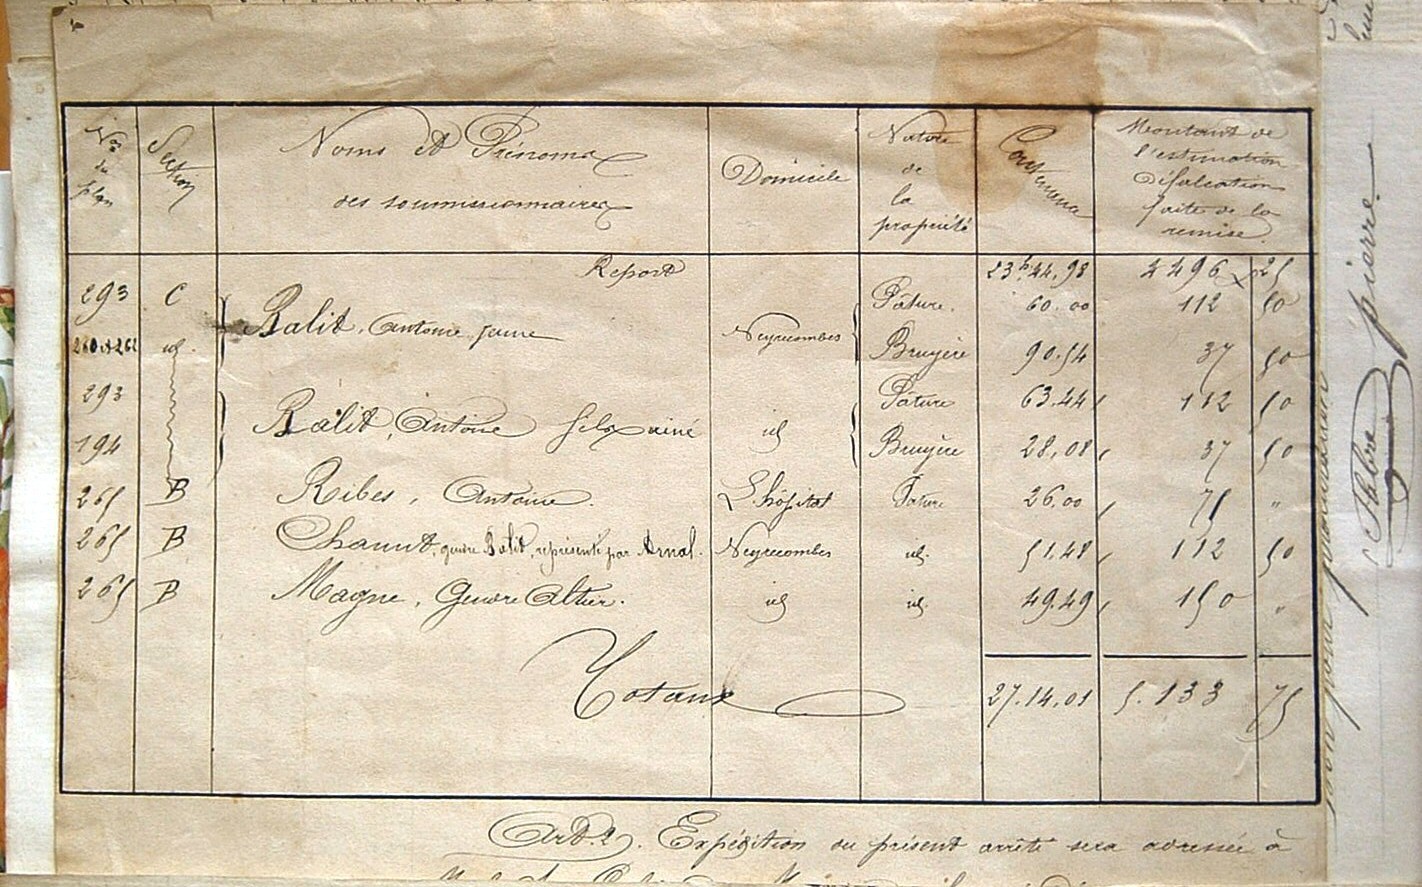 Nos du plan | Section | Noms et Prénoms des soumissionnaires | Domicile | Nature de la propriété | Contenance | Montant de l'estimation Défalcation faite de la remise.
Report | 23h 44,98 | 4496 25
293 | C | Balit, Antoine, jeune | Neyrecombes | Pature. | 60.00 | 112 50
260 et 262 | id. | Bruyère | 90.54 | 37 50
293 | Balit, Antoine fils ainé | id | Pature | 63.44 | 112 50
194 | Bruyère | 28,08 | 37 50
265 | B | Ribes, Antoine. | L'hôpital | Pature | 26.00 | 75 "
265 | B | Chaunt, gendre Balit, représenté par Arnal. | Neyrecombes | id. | 51.48 | 112 50
265 | B | Magne, Gendre Altier. | id | id. | 49.49 | 150 "
Totaux | 27.14.01 | 5.133 75
Art. 2. Expédition du présent arrêté sera adressée à
pierre